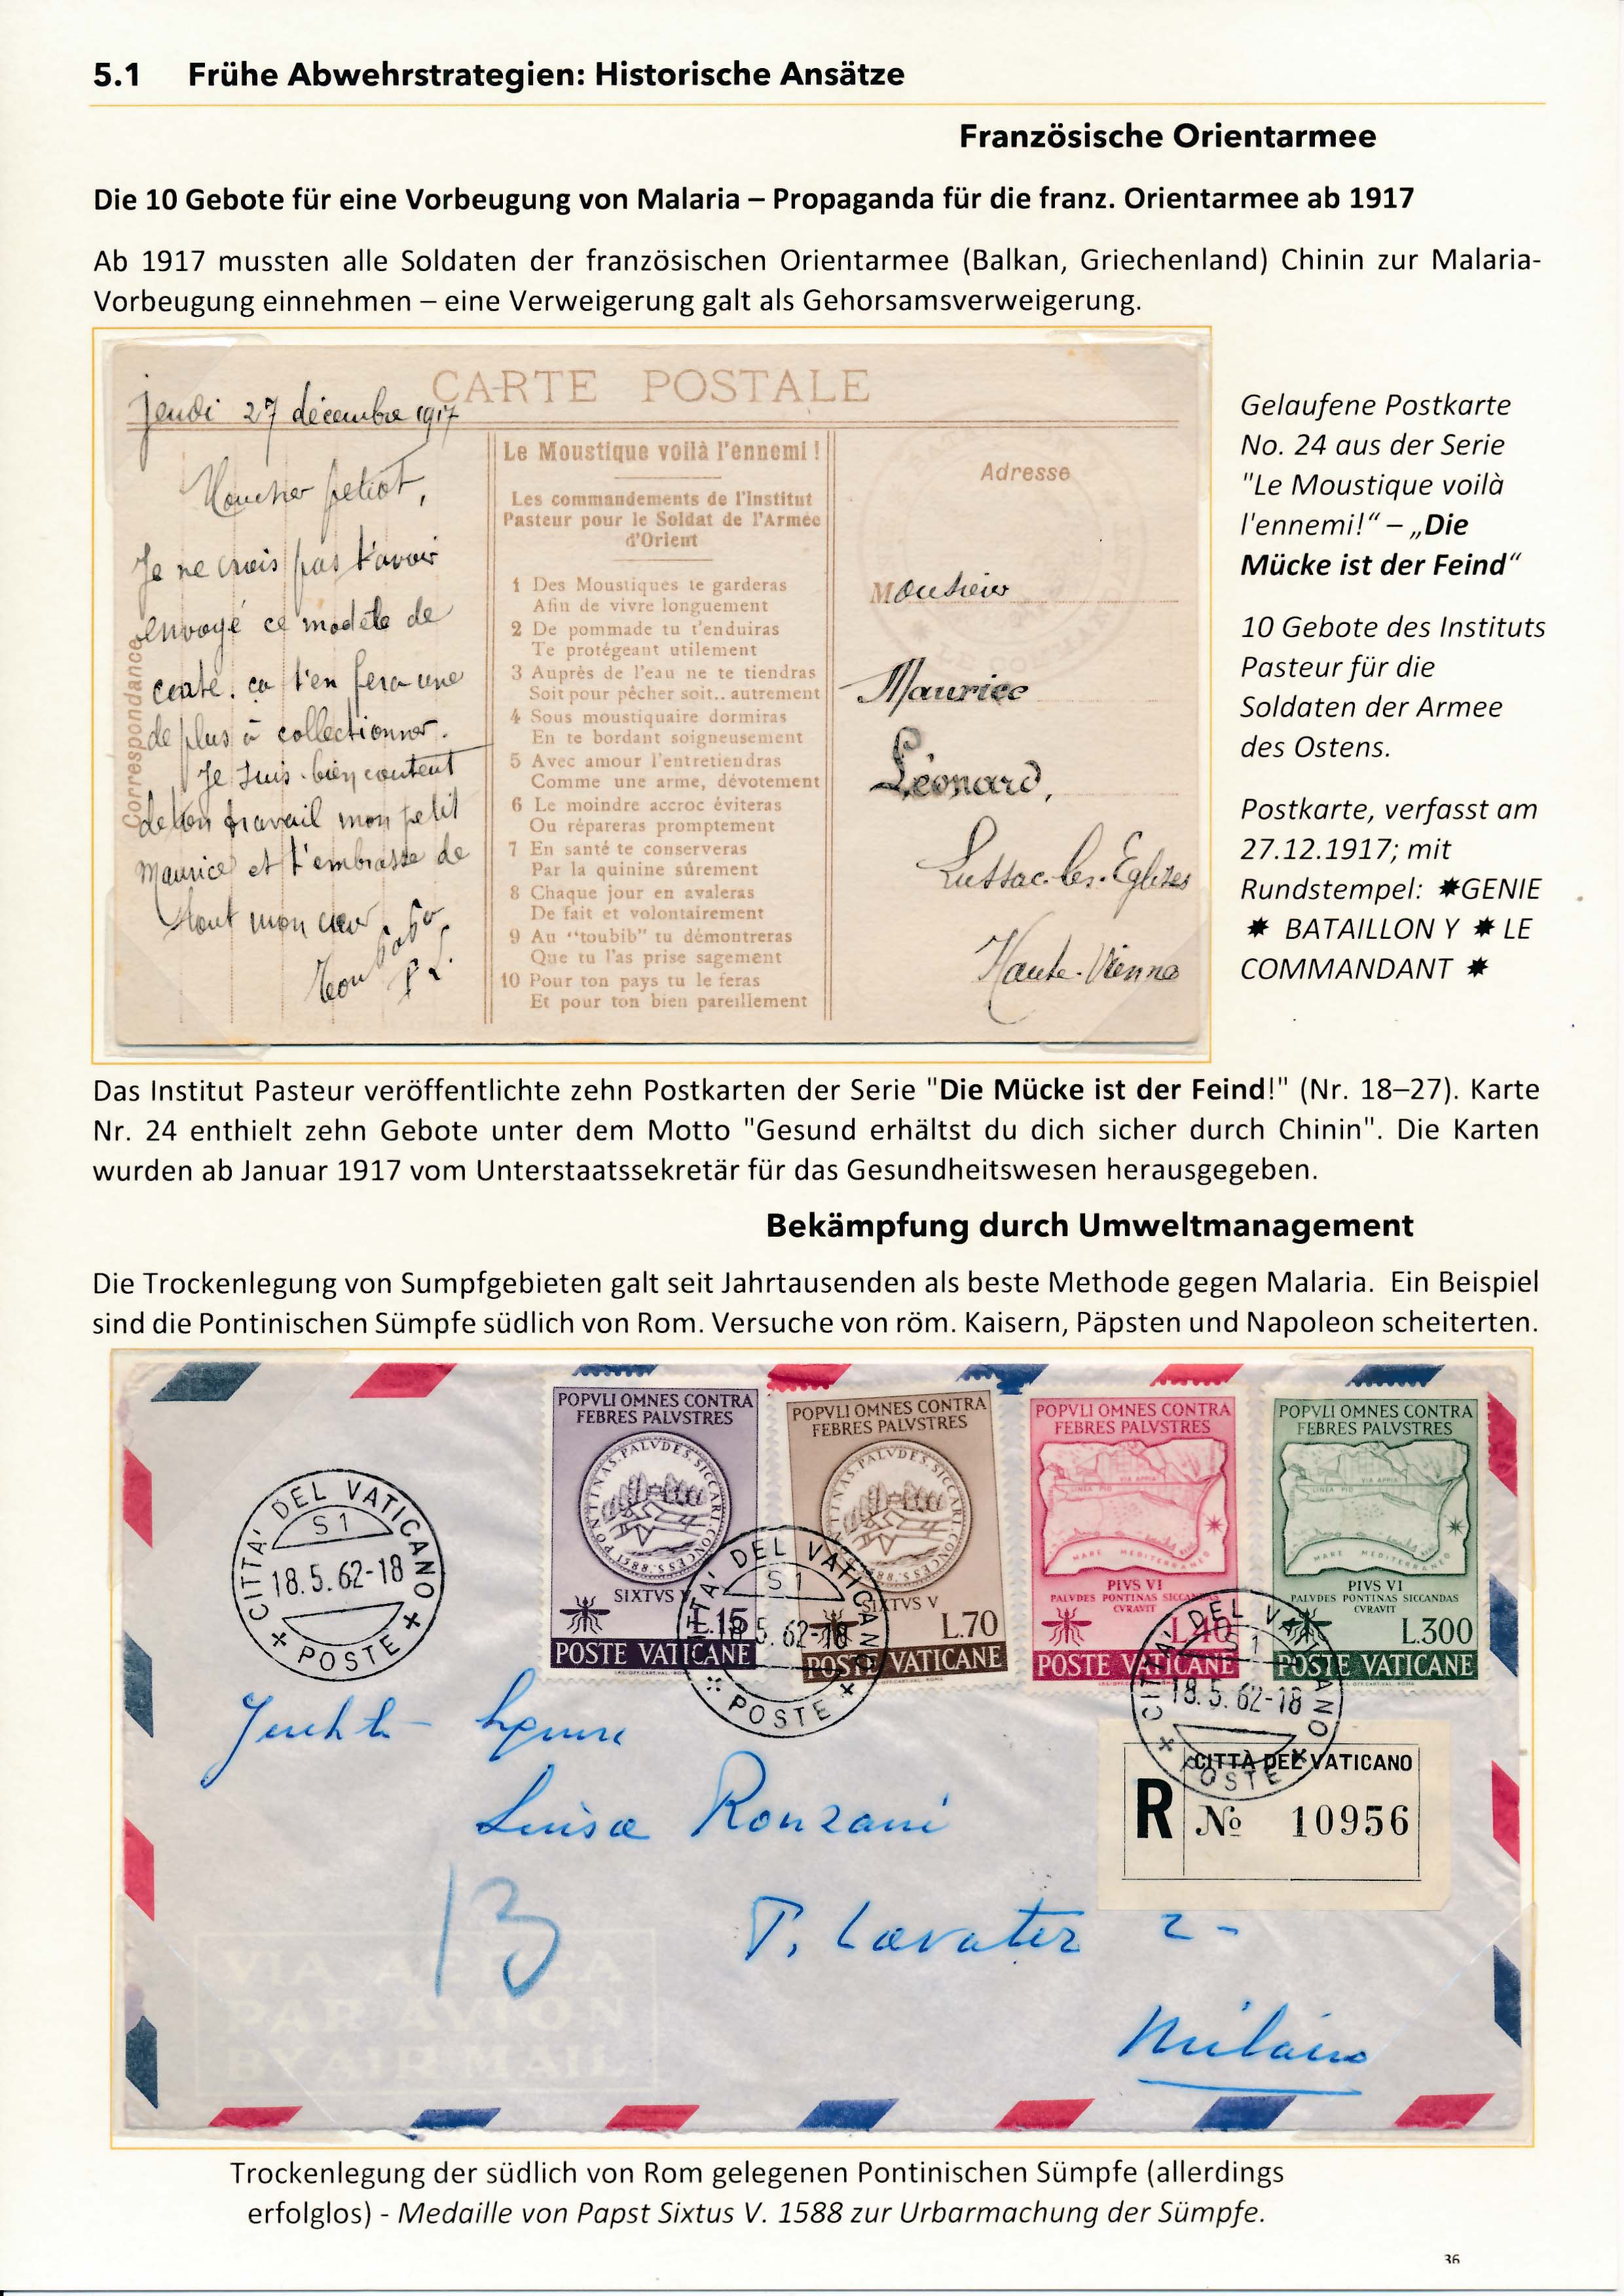 5.1 Frühe Abwehrstrategien: Historische Ansätze
Französische Orientarmee
Die 10 Gebote für eine Vorbeugung von Malaria – Propaganda für die franz. Orientarmee ab 1917
Ab 1917 mussten alle Soldaten der französischen Orientarmee (Balkan, Griechenland) Chinin zur Malaria-
Vorbeugung einnehmen – eine Verweigerung galt als Gehorsamsverweigerung.
CARTE POSTALE
Jeudi 27 décembre 1917
Mon cher petiot,
Je ne crois pas t'avoir
envoyé ce modèle de
carte. ça t'en fera une
de plus à collectionner.
Je suis bien content
de ton travail mon petit
Maurice et t'embrasse de
tout mon cœur
Correspondance
Le Moustique voilà l'ennemi !
Les commandements de l'Institut
Pasteur pour le Soldat de l'Armée
d'Orient
1 Des Moustiques te garderas
Afin de vivre longuement
2 De pommade tu t'enduiras
Te protégeant utilement
3 Auprès de l'eau ne te tiendras
Soit pour pêcher soit.. autrement
4 Sous moustiquaire dormiras
En te bordant soigneusement
5 Avec amour l'entretiendras
Comme une arme, dévotement
6 Le moindre accroc éviteras
Ou répareras promptement
7 En santé te conserveras
Par la quinine sûrement
8 Chaque jour en avaleras
De fait et volontairement
9 Au "toubib" tu démontreras
Que tu l'as prise sagement
10 Pour ton pays tu le feras
Et pour ton bien pareillement
Adresse
Monsieur
Maurice
Léonard,
Lussac-les-Eglises
Haute-Vienne
LE COMMANDANT
Gelaufene Postkarte
No. 24 aus der Serie
"Le Moustique voilà
l'ennemi!“ – „Die
Mücke ist der Feind“
10 Gebote des Instituts
Pasteur für die
Soldaten der Armee
des Ostens.
Postkarte, verfasst am
27.12.1917; mit
Rundstempel: ✷GENIE
✷ BATAILLON Y ✷ LE
COMMANDANT ✷
Das Institut Pasteur veröffentlichte zehn Postkarten der Serie "Die Mücke ist der Feind!" (Nr. 18–27). Karte
Nr. 24 enthielt zehn Gebote unter dem Motto "Gesund erhältst du dich sicher durch Chinin". Die Karten
wurden ab Januar 1917 vom Unterstaatssekretär für das Gesundheitswesen herausgegeben.
Bekämpfung durch Umweltmanagement
Die Trockenlegung von Sumpfgebieten galt seit Jahrtausenden als beste Methode gegen Malaria. Ein Beispiel
sind die Pontinischen Sümpfe südlich von Rom. Versuche von röm. Kaisern, Päpsten und Napoleon scheiterten.
CITTA' DEL VATICANO
S 1
18.5.62-18
POSTE
POPVLI OMNES CONTRA
FEBRES PALVSTRES
PALVDES.SICCARI
SIXTVS V
L.15
POSTE VATICANE
POPVLI OMNES CONTRA
FEBRES PALVSTRES
PALVDES.SICCARI
SIXTVS V
L.70
POSTE VATICANE
POPVLI OMNES CONTRA
FEBRES PALVSTRES
VIA APPIA
LINEA PIO
MARE MEDITERRANEO
PIVS VI
PALVDES PONTINAS SICCANDAS
CVRAVIT
L.40
POSTE VATICANE
POPVLI OMNES CONTRA
FEBRES PALVSTRES
VIA APPIA
LINEA PIO
MARE MEDITERRANEO
PIVS VI
PALVDES PONTINAS SICCANDAS
CVRAVIT
L.300
POSTE VATICANE
CITTA' DEL VATICANO
S 1
18.5.62-18
POSTE
CITTA' DEL VATICANO
S 1
18.5.62-18
POSTE
CITTÀ DEL VATICANO
R No 10956
Luisa Ronzani
13
P. Lavater 2-
Milano
VIA AEREA
PAR AVION
BY AIR MAIL
Trockenlegung der südlich von Rom gelegenen Pontinischen Sümpfe (allerdings
erfolglos) - Medaille von Papst Sixtus V. 1588 zur Urbarmachung der Sümpfe.
36